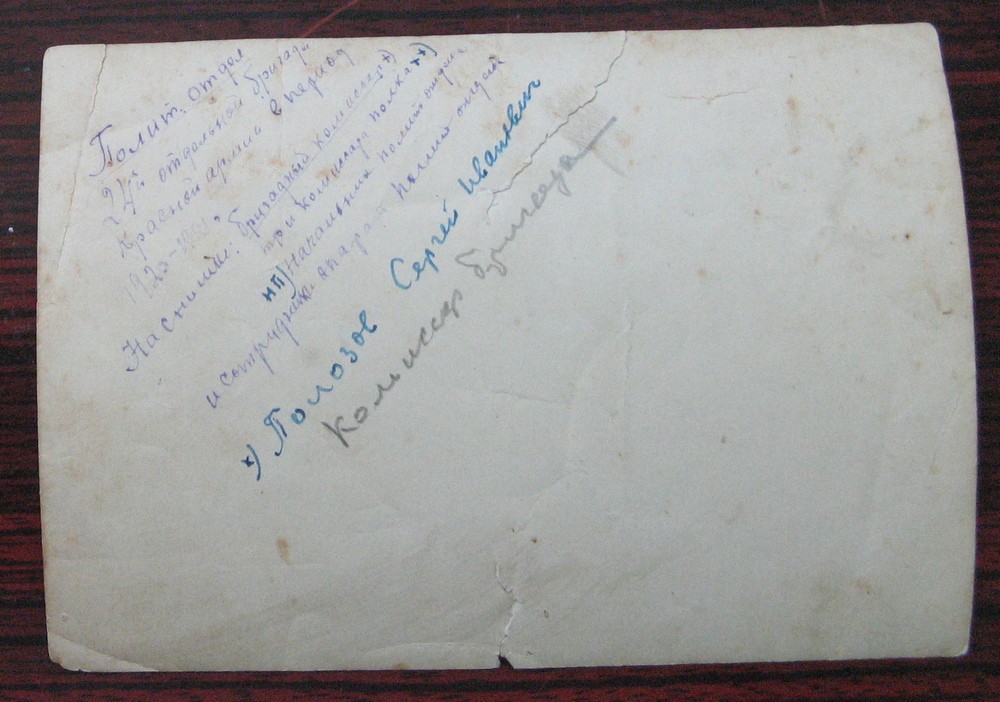 Полит. отдел
24й отдельной бригады
Красной армии в период
1920-
На снимке: бригадный комиссар *)
три комиссара полка **)
нп) Начальник политотдела
и сотрудники апарата полит отдела
*) Полозов Сергей Иванович
Комиссар бригады